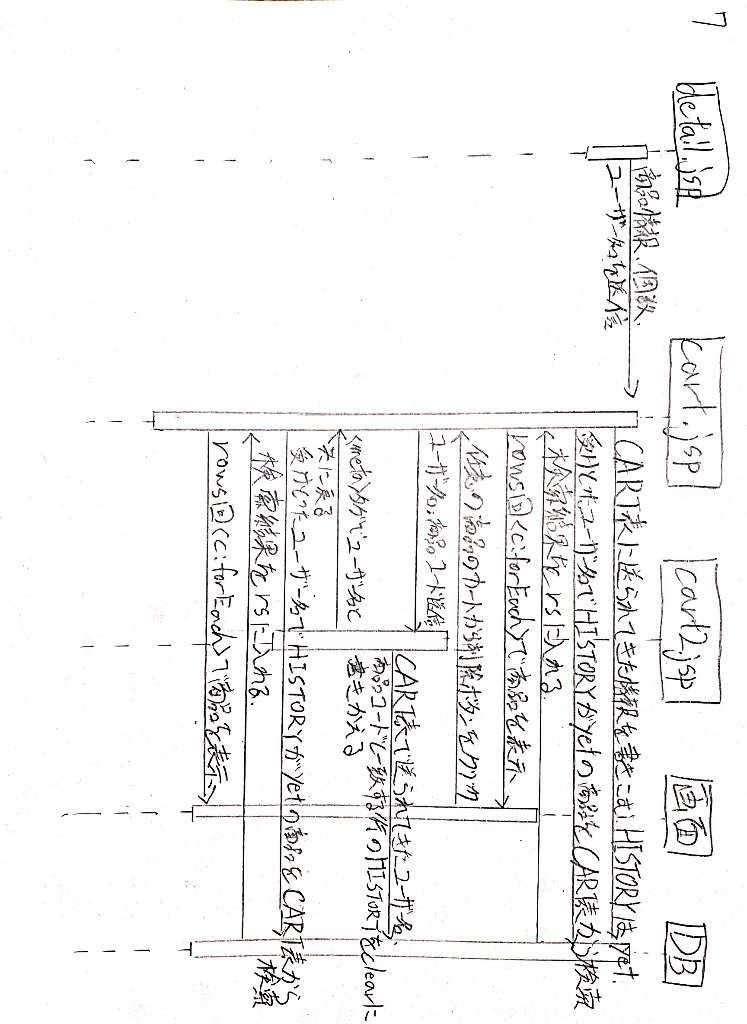 7
detail.jsp
cart.jsp
cart2.jsp
画面
DB
商品情報、個数、
ユーザー名を送信
CART表に送られてきた情報を書きこむ HISTORYはyet.
受けとったユーザー名でHISTORYがyetの商品をCART表から検索
検索結果をrsに入れる
rows回<c:forEach>で商品を表示
任意の商品のカートから削除ボタンをクリック
ユーザー名、商品コード送信
CART表で送られてきたユーザー名、
商品コードで一致する行のHISTORYをclearに
書きかえる
<meta>タグでユーザー名と
共に戻る
受けとったユーザー名でHISTORYがyetの商品をCART表から
検索
検索結果をrsに入れる.
rows回<c:forEach>で商品を表示